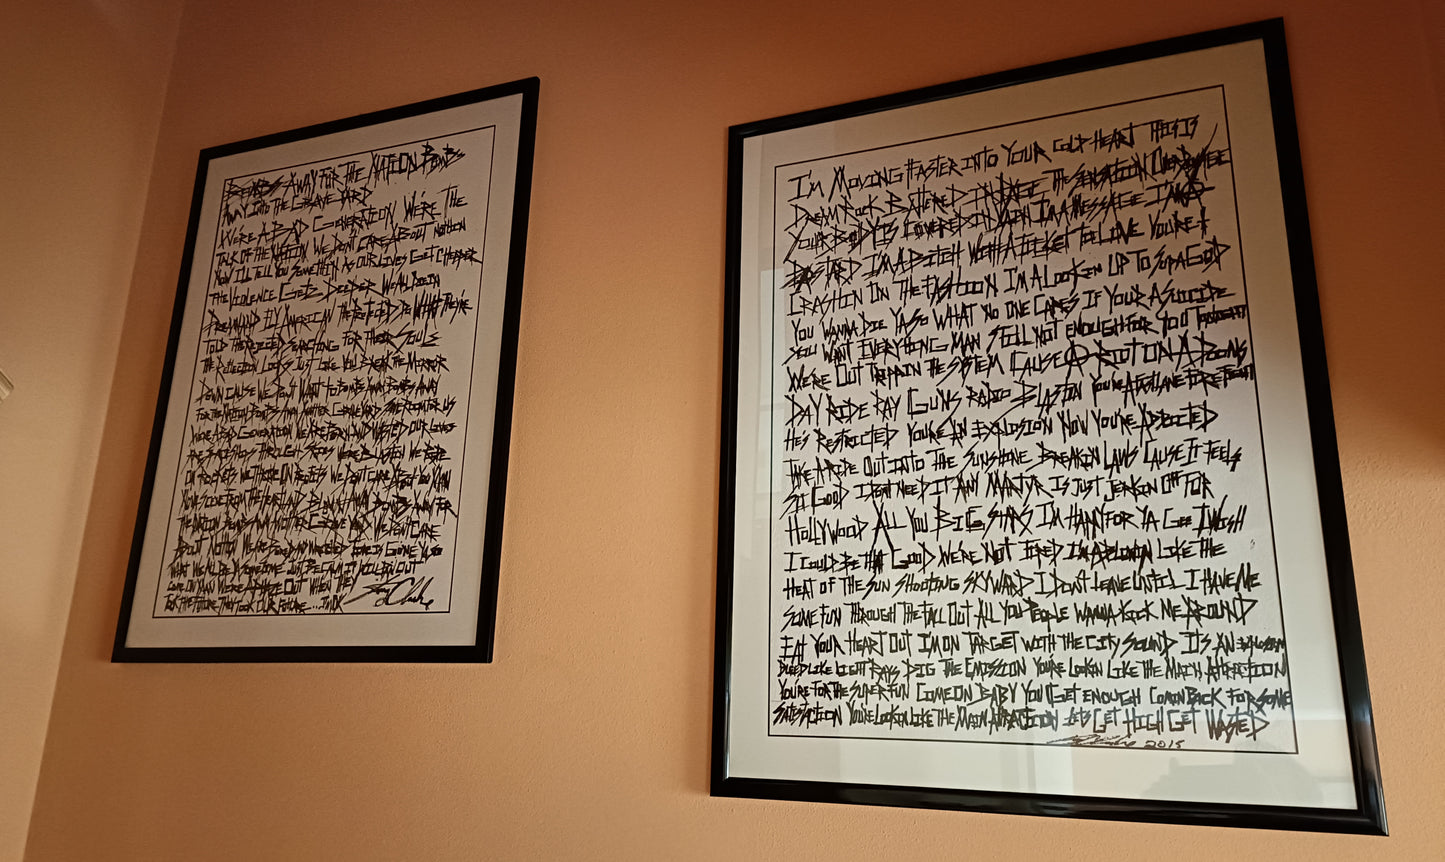 BOMBS AWAY FOR THE NATION BOMBS
AWAY INTO THE GRAVE YARD
WE'RE A BAD GENERATION WE'RE THE
TALK OF THE NATION WE DON'T CARE ABOUT NOTHIN
NOW I'LL TELL YOU SOMETHIN AS OUR LIVES GET CHEAPER
THE VIOLENCE GETZ DEEPER
AMERICAN DO WHAT THEY'RE
TOLD THE REJECTED SEARCHING FOR THEIR SOULS
THE REFLECTION LOOKS JUST LIKE YOU BREAK THE MIRROR
DOWN CAUSE WE DON'T WANT TO BOMBS AWAY BOMBS AWAY
FOR THE NATION BOMBS AWAY ANOTHER GRAVEYARD SAVE ROOM FOR US
WE'RE A BAD GENERATION WE ARE TORN AND WASTED OUR LIVES
WE'RE BLASTEN WE RIDE
ON ROCKETS WE THRIVE ON WE DON'T CARE ABOUT YOU MAN
BOMBS AWAY FOR
THE NATION BOMBS AWAY ANOTHER GRAVE YARD WE DON'T CARE
ABOUT NOTHIN WE'RE BORED AND WASTED
WHAT WE ALL BE JUST BECAUSE IT
COME ON MAN WE'RE OUT WHEN THEY
TOOK THE FUTURE THEY TOOK OUR FUTURE ...
I'M MOVING FASTER INTO YOUR COLD HEART THIS IS
DREAM ROCK BATTERED IN RAGE THE SENSATION OVERDOSE
YOUR BODY IS COVERED IN VAIN I'M A MESSAGE I'M A
BASTARD I'M A BITCH WITH A TICKET TO LIVE YOU'RE
CRASHIN IN THE FASHION I'M A LOOKIN UP TO SUPA GOD
YOU WANNA DIE YA SO WHAT NO ONE CARES IF YOUR A SUICIDE
YOU WANT EVERYTHING MAN STILL NOT ENOUGH FOR YOU TONIGHT
WE'RE OUT TRIPPIN THE SYSTEM CAUSE A RIOT ON A DOOMS
DAY RIDE RAY GUNS RADIO BLASTIN YOU'RE A FASTLANE
HE'S RESTRICTED YOU'RE AN EXPLOSION NOW YOU'RE ADDICTED
TAKE A RIDE OUT INTO THE SUNSHINE BREAKIN LAWS CAUSE IT FEELS
SO GOOD I DON'T NEED IT ANY MARTYR IS JUST JERKIN OFF FOR
HOLLYWOOD ALL YOU BIG STARS I'M HAPPY FOR YA GEE I WISH
I COULD BE THAT GOOD WE'RE NOT TIRED I'M A BLOWIN LIKE THE
HEAT OF THE SUN SHOOTING SKYWARD I DON'T LEAVE UNTIL I HAVE ME
SOME FUN THROUGH THE FALL OUT ALL YOU PEOPLE WANNA KICK ME AROUND
EAT YOUR HEART OUT I'M ON TARGET WITH THE CITY SOUND IT'S AN EXPLOSION
BLEED LIKE LIGHT RAYS DIG THE EMISSION YOU'RE LOOKIN LIKE THE MAIN ATTRACTION
YOU'RE FOR THE SUPER FUN COME ON BABY YOU GET ENOUGH COMIN BACK FOR SOME
SATISFACTION YOU'RE LOOKIN LIKE THE MAIN ATTRACTION LETS GET HIGH GET WASTED
2015